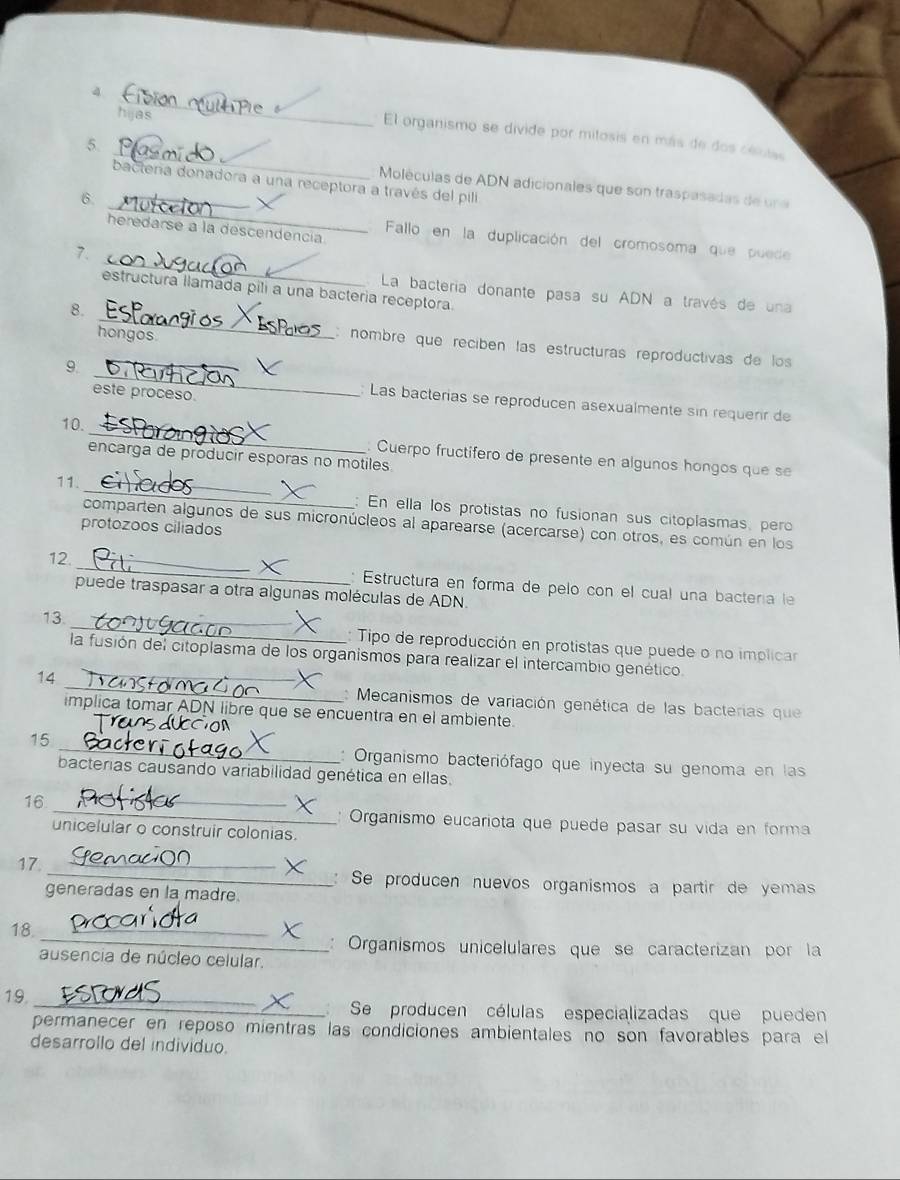 4. Fision multiple
El organismo se divide por mitosis en más de dos células
hijas
5. Plasmido
Moléculas de ADN adicionales que son traspasadas de una
bacteria donadora a una receptora a través del pili
6. Mutacion
Fallo en la duplicación del cromosoma que puede
heredarse a la descendencia.
7. conjugacion
La bacteria donante pasa su ADN a través de una
estructura llamada pili a una bacteria receptora.
8. Esporangios X Esporas : nombre que reciben las estructuras reproductivas de los
hongos.
9. Biparticion X : Las bacterias se reproducen asexualmente sin requerir de
este proceso.
10. Esporangios X : Cuerpo fructífero de presente en algunos hongos que se
encarga de producir esporas no motiles.
11. Ciliados X : En ella los protistas no fusionan sus citoplasmas, pero
comparten algunos de sus micronúcleos al aparearse (acercarse) con otros, es común en los
protozoos ciliados
12. Pili X : Estructura en forma de pelo con el cual una bacteria le
puede traspasar a otra algunas moléculas de ADN.
13. conjugacion X : Tipo de reproducción en protistas que puede o no implicar
la fusión del citoplasma de los organismos para realizar el intercambio genético.
14 Transformacion X : Mecanismos de variación genética de las bacterias que
implica tomar ADN libre que se encuentra en el ambiente.
Transduccion
15 Bacteriofago X : Organismo bacteriófago que inyecta su genoma en las
bacterias causando variabilidad genética en ellas.
16 Protistas X : Organismo eucariota que puede pasar su vida en forma
unicelular o construir colonias.
17. Gemacion X : Se producen nuevos organismos a partir de yemas
generadas en la madre.
18. procariota X : Organismos unicelulares que se caracterizan por la
ausencia de núcleo celular.
19. Esporas X : Se producen células especializadas que pueden
permanecer en reposo mientras las condiciones ambientales no son favorables para el
desarrollo del individuo.